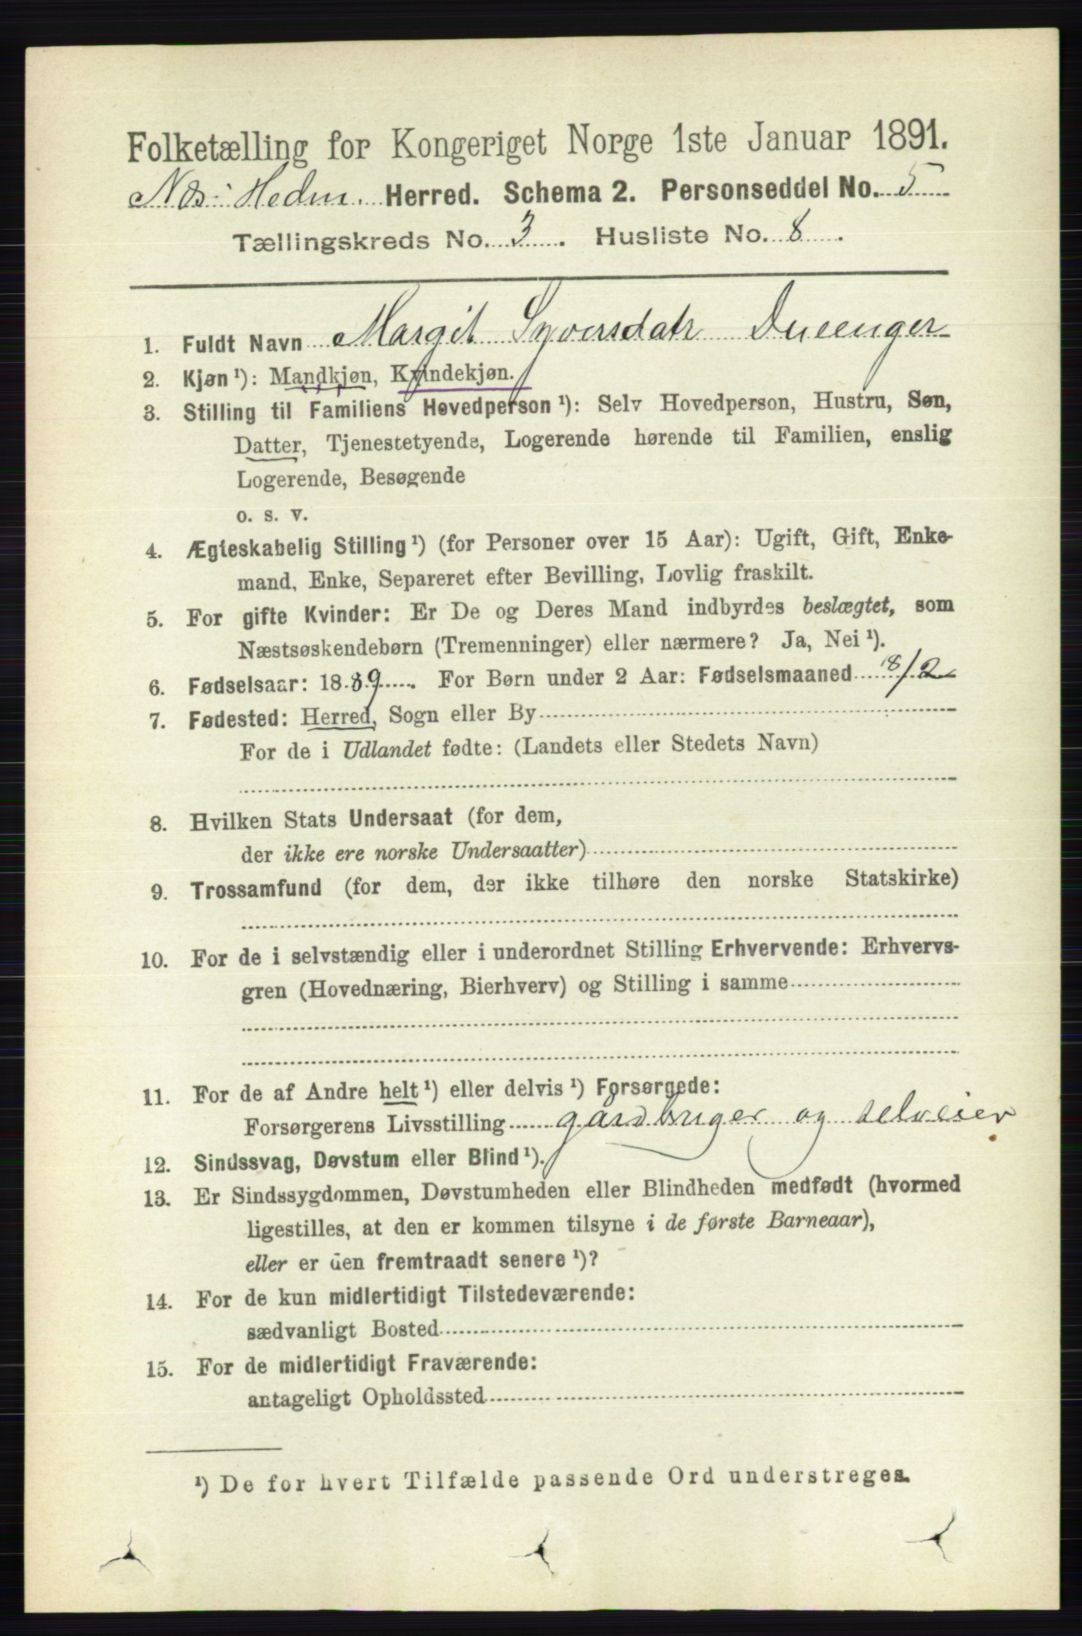 Folketælling for Kongeriget Norge 1ste Januar 1891.
Næs: Hedm. Herred. Schema 2. Personseddel No. 5
Tællingskreds No. 3. Husliste No. 8.
1. Fuldt Navn Margit Syversdatr
2. Kjøn ¹): Mandkjøn, Kvindekjøn.
3. Stilling til Familiens Hovedperson ¹): Selv Hovedperson, Hustru, Søn,
Datter, Tjenestetyende, Logerende hørende til Familien, enslig
Logerende, Besøgende
o. s. v.
4. Ægteskabelig Stilling ¹) (for Personer over 15 Aar): Ugift, Gift, Enke-
mand, Enke, Separeret efter Bevilling, Lovlig fraskilt.
5. For gifte Kvinder: Er De og Deres Mand indbyrdes beslægtet, som
Næstsøskendebørn (Tremenninger) eller nærmere? Ja, Nei ¹).
6. Fødselsaar: 1889. For Børn under 2 Aar: Fødselsmaaned 8/2
7. Fødested: Herred, Sogn eller By
For de i Udlandet fødte: (Landets eller Stedets Navn)
8. Hvilken Stats Undersaat (for dem,
der ikke ere norske Undersaatter)
9. Trossamfund (for dem, der ikke tilhøre den norske Statskirke)
10. For de i selvstændig eller i underordnet Stilling Erhvervende: Erhvervs-
gren (Hovednæring, Bierhverv) og Stilling i samme
11. For de af Andre helt ¹) eller delvis ¹) Forsørgede:
Forsørgerens Livsstilling gårdbruger og selveier
12. Sindssvag, Døvstum eller Blind ¹).
13. Er Sindssygdommen, Døvstumheden eller Blindheden medfødt (hvormed
ligestilles, at den er kommen tilsyne i de første Barneaar),
eller er den fremtraadt senere ¹)?
14. For de kun midlertidigt Tilstedeværende:
sædvanligt Bosted
15. For de midlertidigt Fraværende:
antageligt Opholdssted
¹) De for hvert Tilfælde passende Ord understreges.